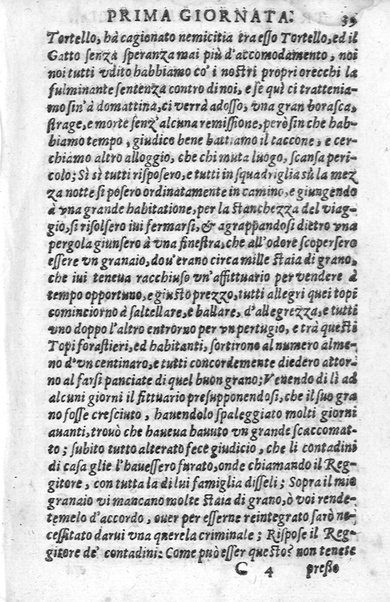 PRIMA GIORNATA. 39
Tortello, hà cagionato nemicitia tra esso Tortello, ed il
Gatto senza speranza mai più d'accomodamento, noi
noi tutti vdito habbiamo co' i nostri propri orecchi la
fulminante sentenza contro di noi, e se quì ci trattenia-
mo sin'à domattina, ci verrà adosso, vna gran borasca,
strage, e morte senz'alcuna remissione, però sin che hab-
biamo tempo, giudico bene battiamo il taccone, e cer-
chiamo altro alloggio, che chi muta luogo, scansa peri-
colo; Sì sì tutti risposero, e tutti in squadriglia sù la mez
za notte si posero ordinatamente in camino, e giungendo
à vna grande habitatione, per la stanchezza del viag-
gio, si risolsero iui fermarsi, & agrappandosi dietro vna
pergola giunsero à vna finestra, che all'odore scopersero
essere vn granaio, dou'erano circa mille staia di grano,
che iui teneua racchiuso vn'affittuario per vendere à
tempo opportuno, e giusto prezzo, tutti allegri quei topi
cominciorno à saltellare, e ballare, d'allegrezza, e tutti
vno doppo l'altro entrorno per vn pertugio, e trà questi
Topi forastieri, ed habitanti, sortirono al numero alme-
no d'vn centinaro, e tutti concordemente diedero attor-
no al farsi panciate di quel buon grano; Venendo di lì ad
alcuni giorni il fittuario presupponendosi, che il suo gra
no fosse cresciuto, hauendolo spaleggiato molti giorni
auanti, trouò che haueua hauuto vn grande scaccomat-
to; subito tutto alterato fece giudicio, che li contadini
di casa glie l'hauessero furato, onde chiamando il Reg-
gitore, con tutta la di lui famiglia disseli; Sopra il mio
granaio vi mancano molte staia di grano, ò voi rende-
temelo d'accordo, ouer per esserne reintegrato sarò ne-
cessitato darui vna querela criminale; Rispose il Reg-
gitore de' contadini: Come può esser questo? non tenete
C 4 presso